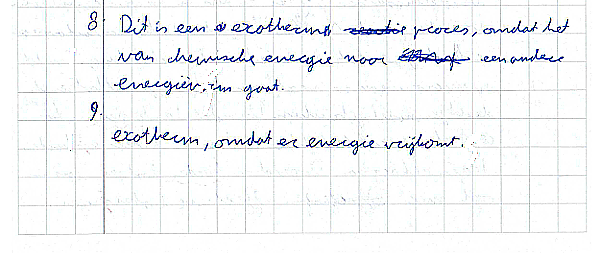 8. Dit is een exotherm proces, omdat het
van chemische energie naar een andere
energievorm gaat.
9.
exotherm, omdat er energie vrijkomt.